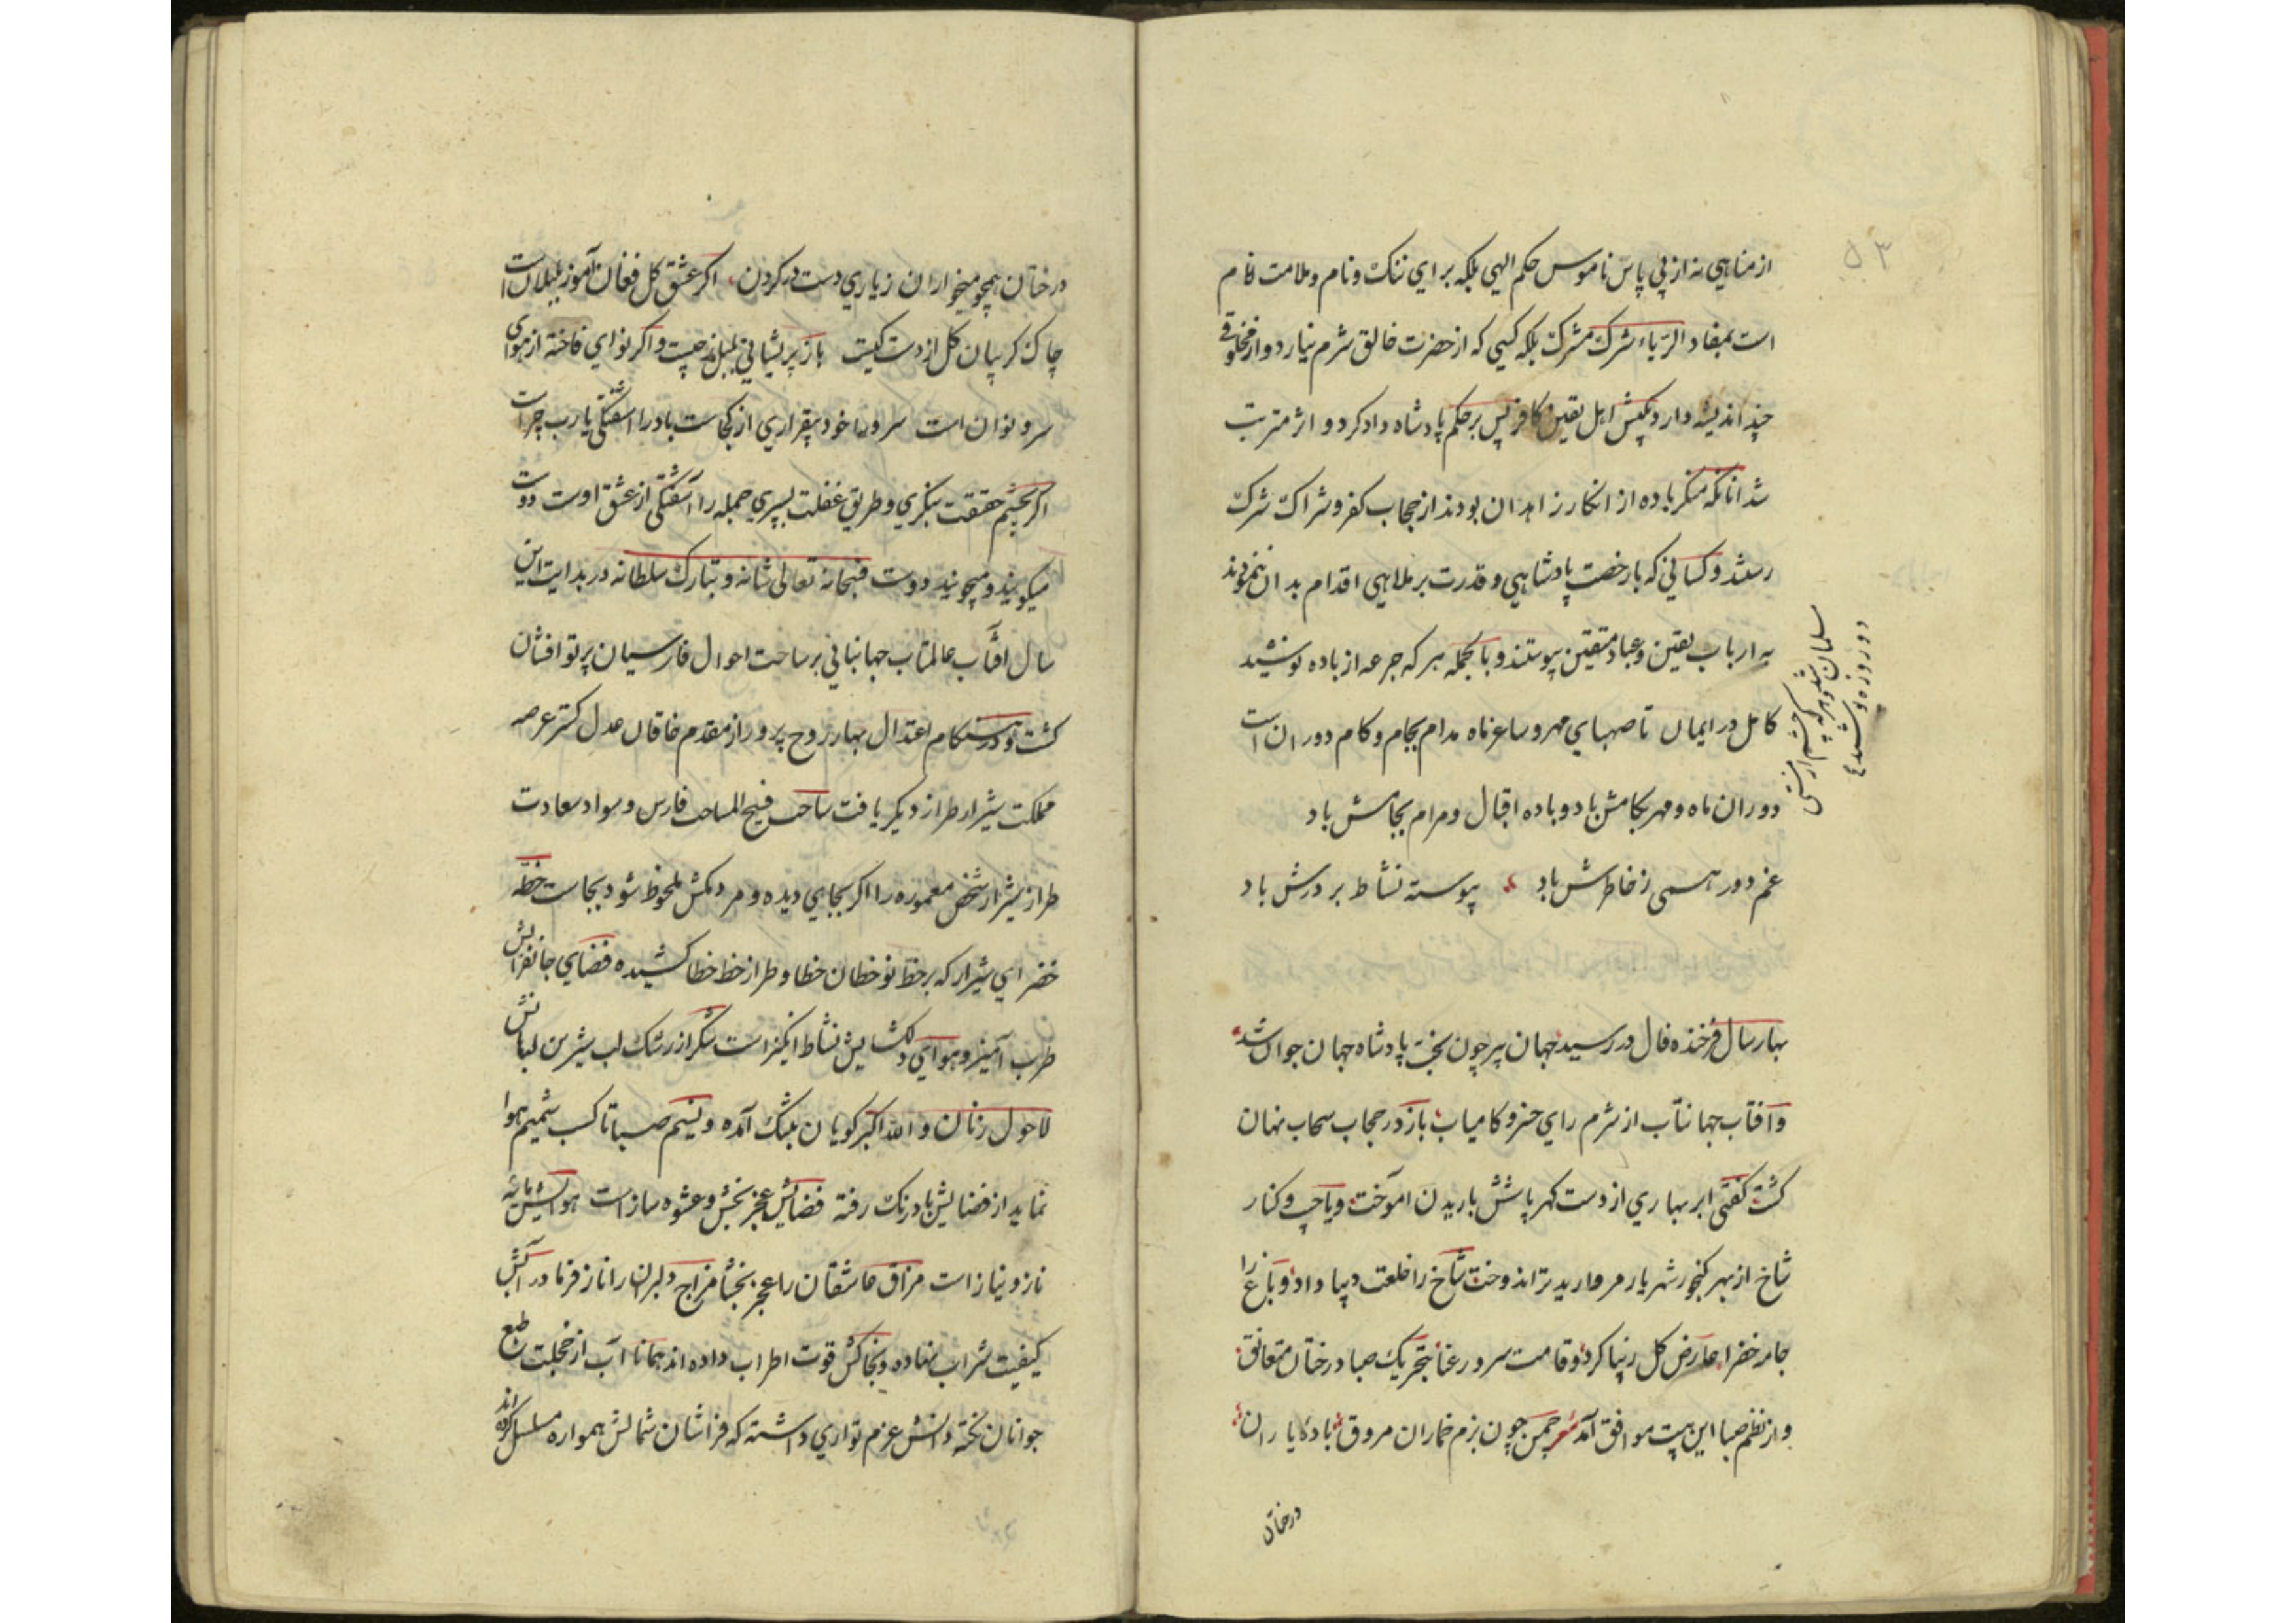 ۵۳
از مناهي نه از پي پاس ناموس حکم الهي بلکه براي ننک و نام و ملامت
است بمفاد الرياء شرک مشرک بلکه کسي که از حضرت خالق شرم نيارد و از مخلوقي
چند انديشه دارد بکيش اهل يقين کافر پس بر حکم پادشاه داد کرد و اثر مترتب
شد انانکه منکر باده از انکار زاهدان بودند از حجاب کفر و شراک شرک
رستند و کساني که با رخصت پادشاهي و قدرت بر ملاهي اقدام بدان ننمودند
به ارباب يقين و عباد متقين پيوستند و بالجمله هر که جرعه از باده نوشيد
کامل در ايمان تا صهباي مهر و ساغر ماه مدام بجام و کام دوران است
دوران ماه و مهر بکامش باد و باده اقبال و مرام بجامش باد
غم دور همي ز خاطرش باد پيوسته نشاط بر درش باد
مسلمان شد و هر که چشم از مستي
دو روزه پوشيد
بهار سال فرخنده فال در رسيد جهان پير چون بخت پادشاه جهان جوان شد
و آفتاب جهانتاب از شرم راي خسرو کامياب باز در حجاب سحاب نهان
کشت کفتي ابر بهاري از دست کهر پاشش باريدن آموخت و يا جيب و کنار
شاخ از بهر کنجور شهريار مرواريد تر اندوخت شاخ را خلعت ديبا داد و باغ را
جامه خضرا عارض کل زيبا کرد و قامت سرو رعنا بتحريک صبا درختان متعانق
و از نظم صبا اين بيت موافق آمد شعر چمن چون بزم خماران مروق باد کايا ران
درختان
درختان همچو ميخواران ز ياري دست در کردن اکر عشق کل فغان آموز بلبلان است
چاک کريبان کل از دست کيست باز پريشاني بلبل چيست و اکر نواي فاخته از هواي
سرو نوان است سرو را خود بيقراري از کجاست باد را آشفتکي يا رب چراست
اکر بچشم حقيقت بنکري و طريق غفلت بسپري جمله را آشفتکي از عشق اوست دوست
ميکويند و ميجويند دوست فسبحانه تعالي شانه و تبارک سلطانه در بدايت اين
سال آفتاب عالمتاب جهانباني بر ساحت احوال فارسيان پرتو افشان
کشت و در هنکام اعتدال بهار روح پرور از مقدم خاقان عدل کستر عرصه
مملکت شيراز طراز ديکر يافت ساحت فسيح المساحت فارس و سواد سعادت
طراز شيراز شخص معموره را اکر بجاي ديده و مردمکش ملحوظ شود بجاست خطه
خضراي شيراز که بر خط نوخطان خطا و طراز خط خطا کشيده فضاي جانفزايش
طرب آميز و هواي دلکشايش نشاط انکيز است شکر از رشک لب شيرين لبانش
لاحول زنان و الله اکبر کويان بتنک آمده و نسيم صبا تا کسب شميم هوا
نمايد از فضايش باد رنک رفته فضايش عجز بخش و عشوه ساز است هوايش مايه
ناز و نياز است مزاق عاشقان را عجز بخشا مزاج دلبران را ناز فرما در آبش
کيفيت شراب نهاده و بخاکش قوت اطراب داده اند همانا آب از خجلت طبع
جوانان پخته دانش عزم تواري داشته که فراشان شمالش همواره مسلسل کرده اند